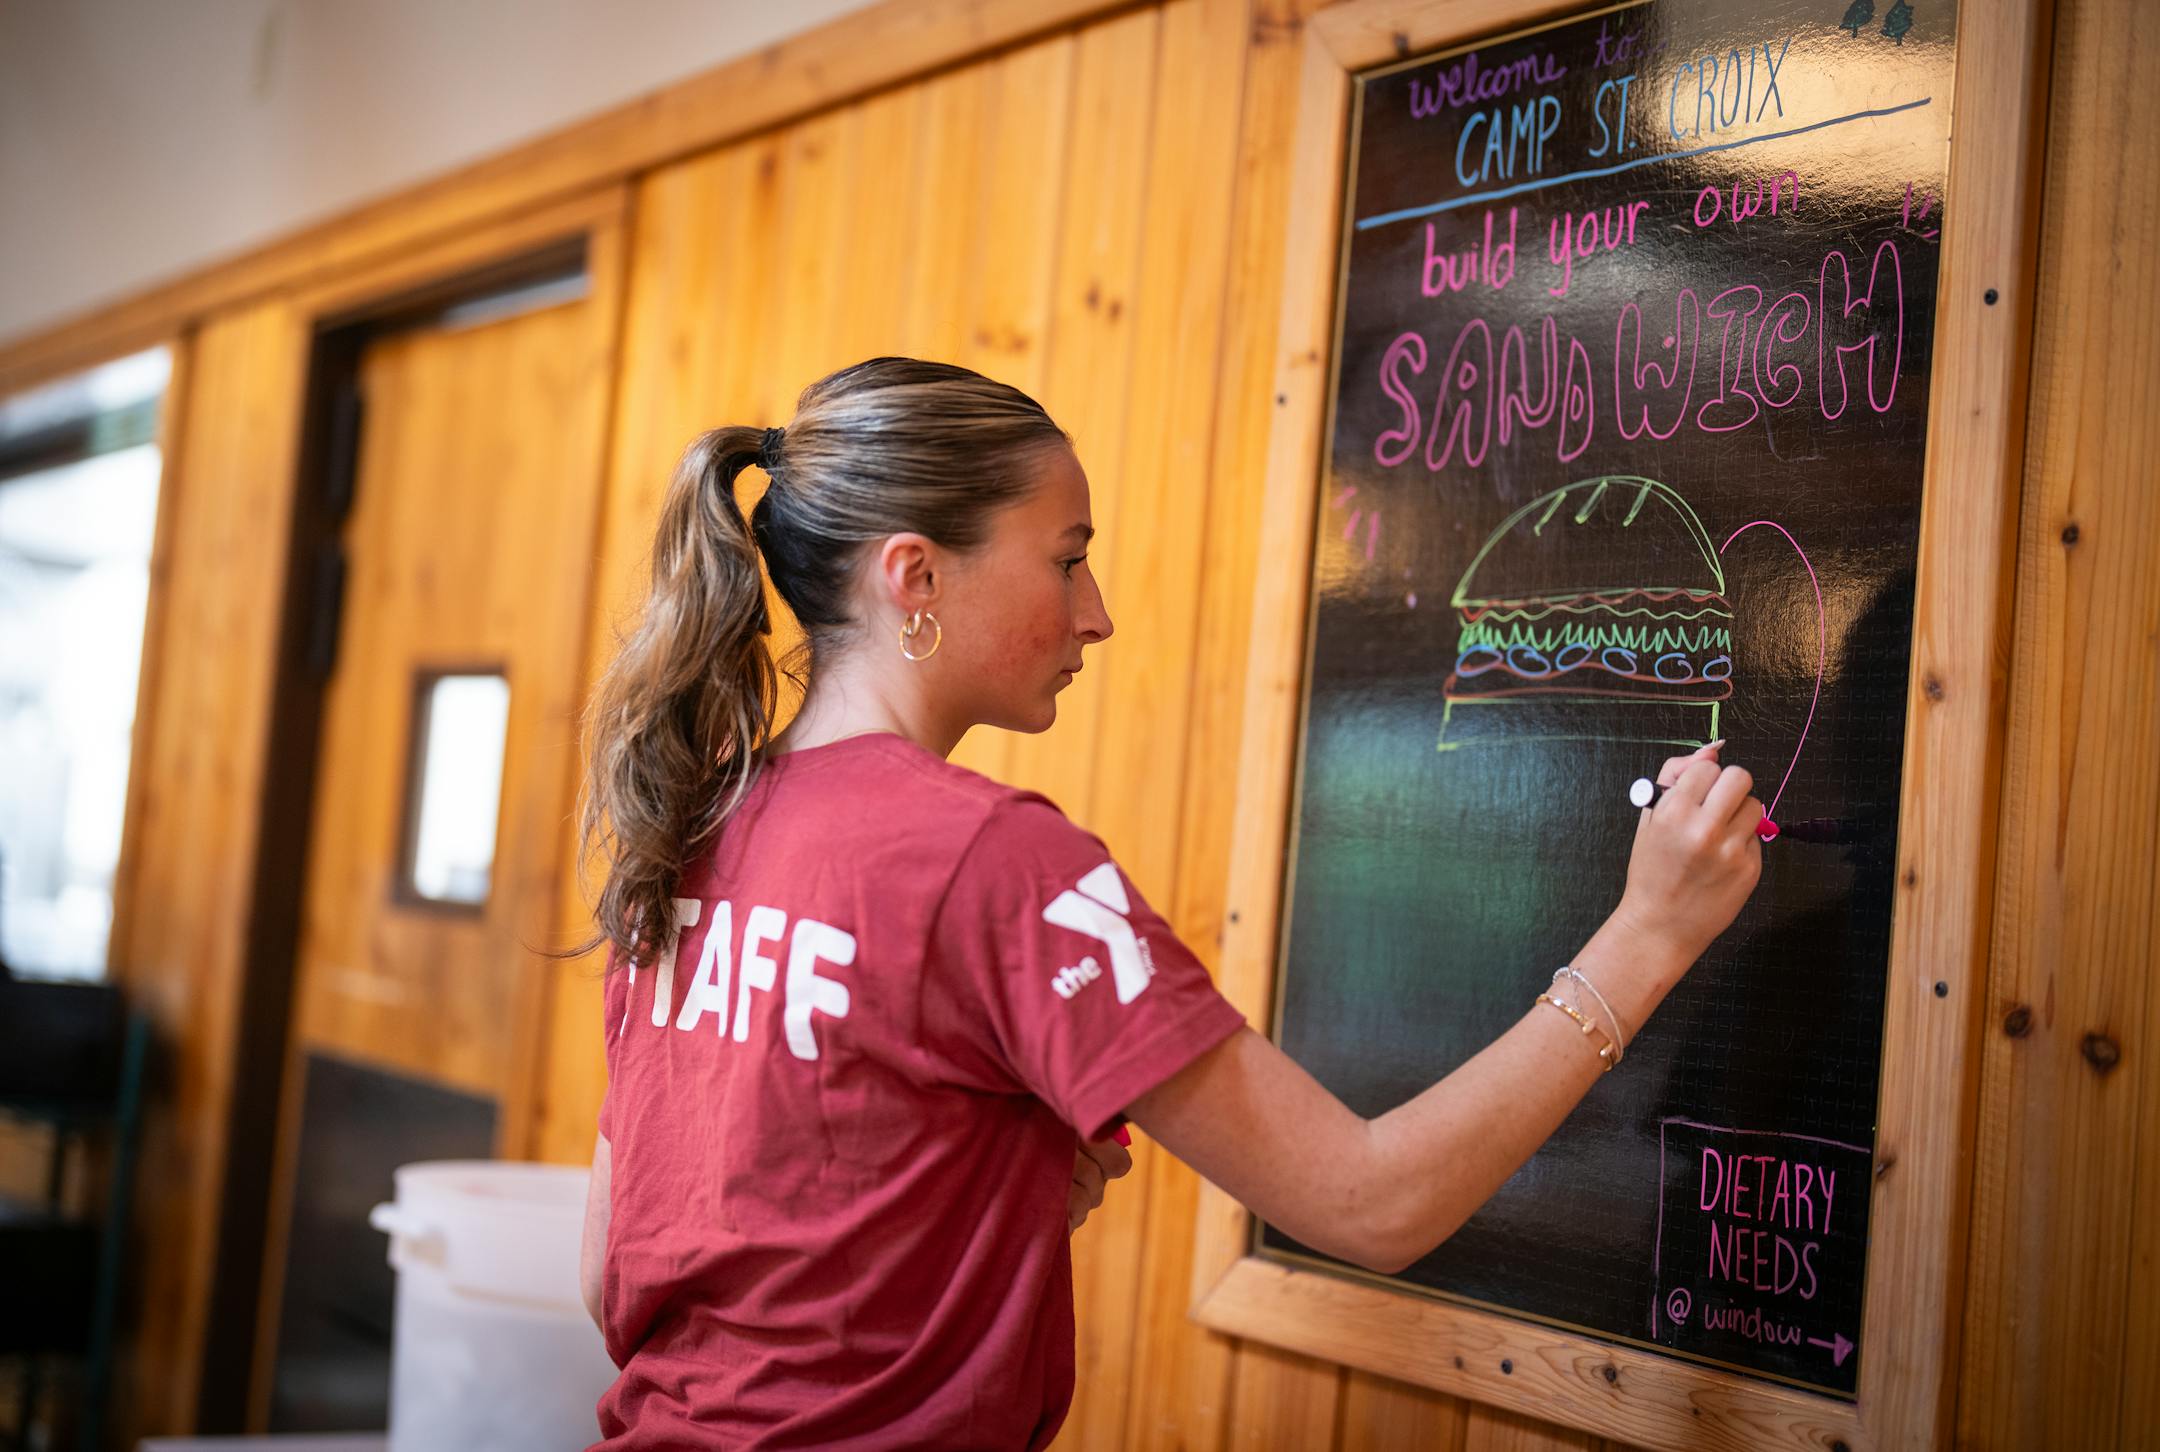 welcome to...
CAMP ST. CROIX
build your own
SANDWICH
DIETARY
NEEDS
@ window
TAFF
the Y